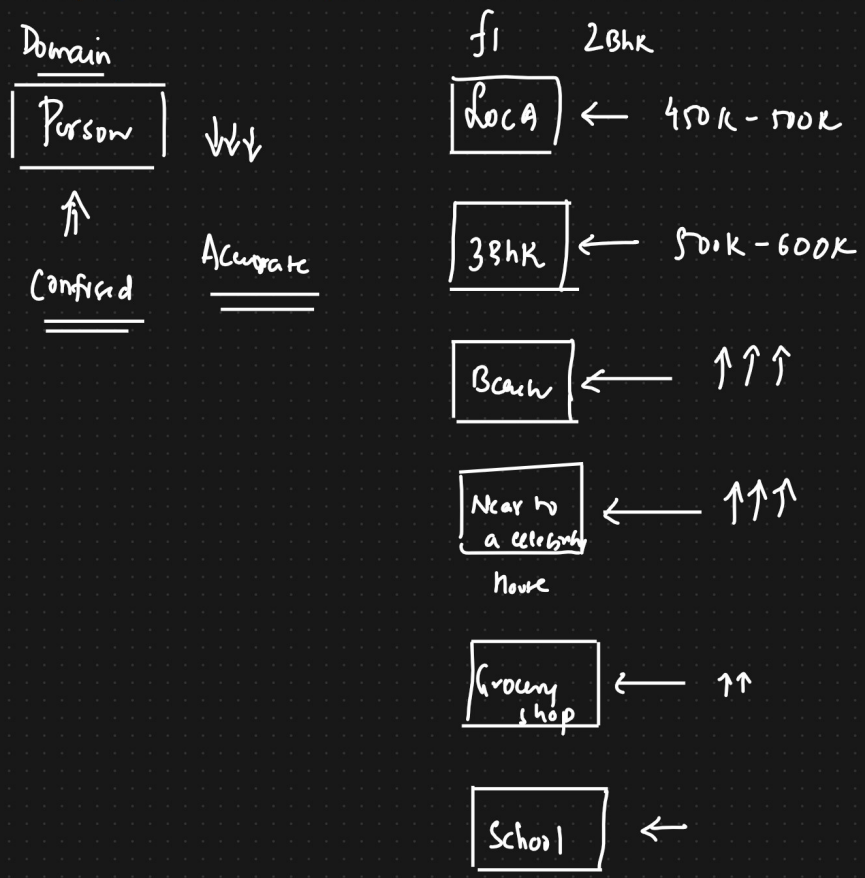 Domain
Person
Confused
Accurate
f1 2Bhk
Loc A ← 450K - 500K
3Bhk ← 500K - 600K
Beach ← ↑↑↑
Near to
a celebrity
house
← ↑↑↑
Grocery
shop
← ↑↑
School ←